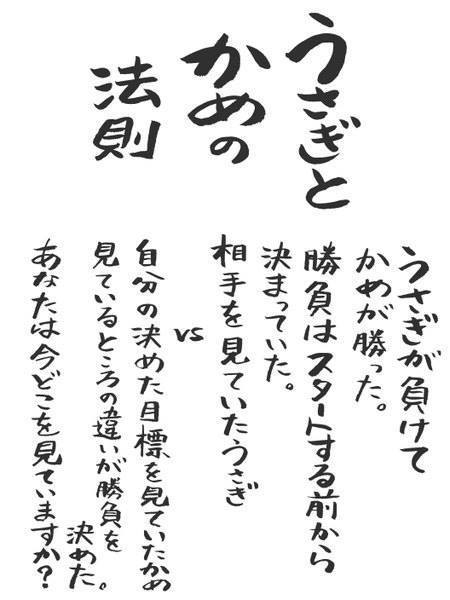 うさぎと
かめの
法則
うさぎが負けて
かめが勝った。
勝負はスタートする前から
決まっていた。
相手を見ていたうさぎ
vs
自分の決めた目標を見ていたかめ
見ているところの違いが勝負を
決めた。
あなたは今どこを見ていますか?